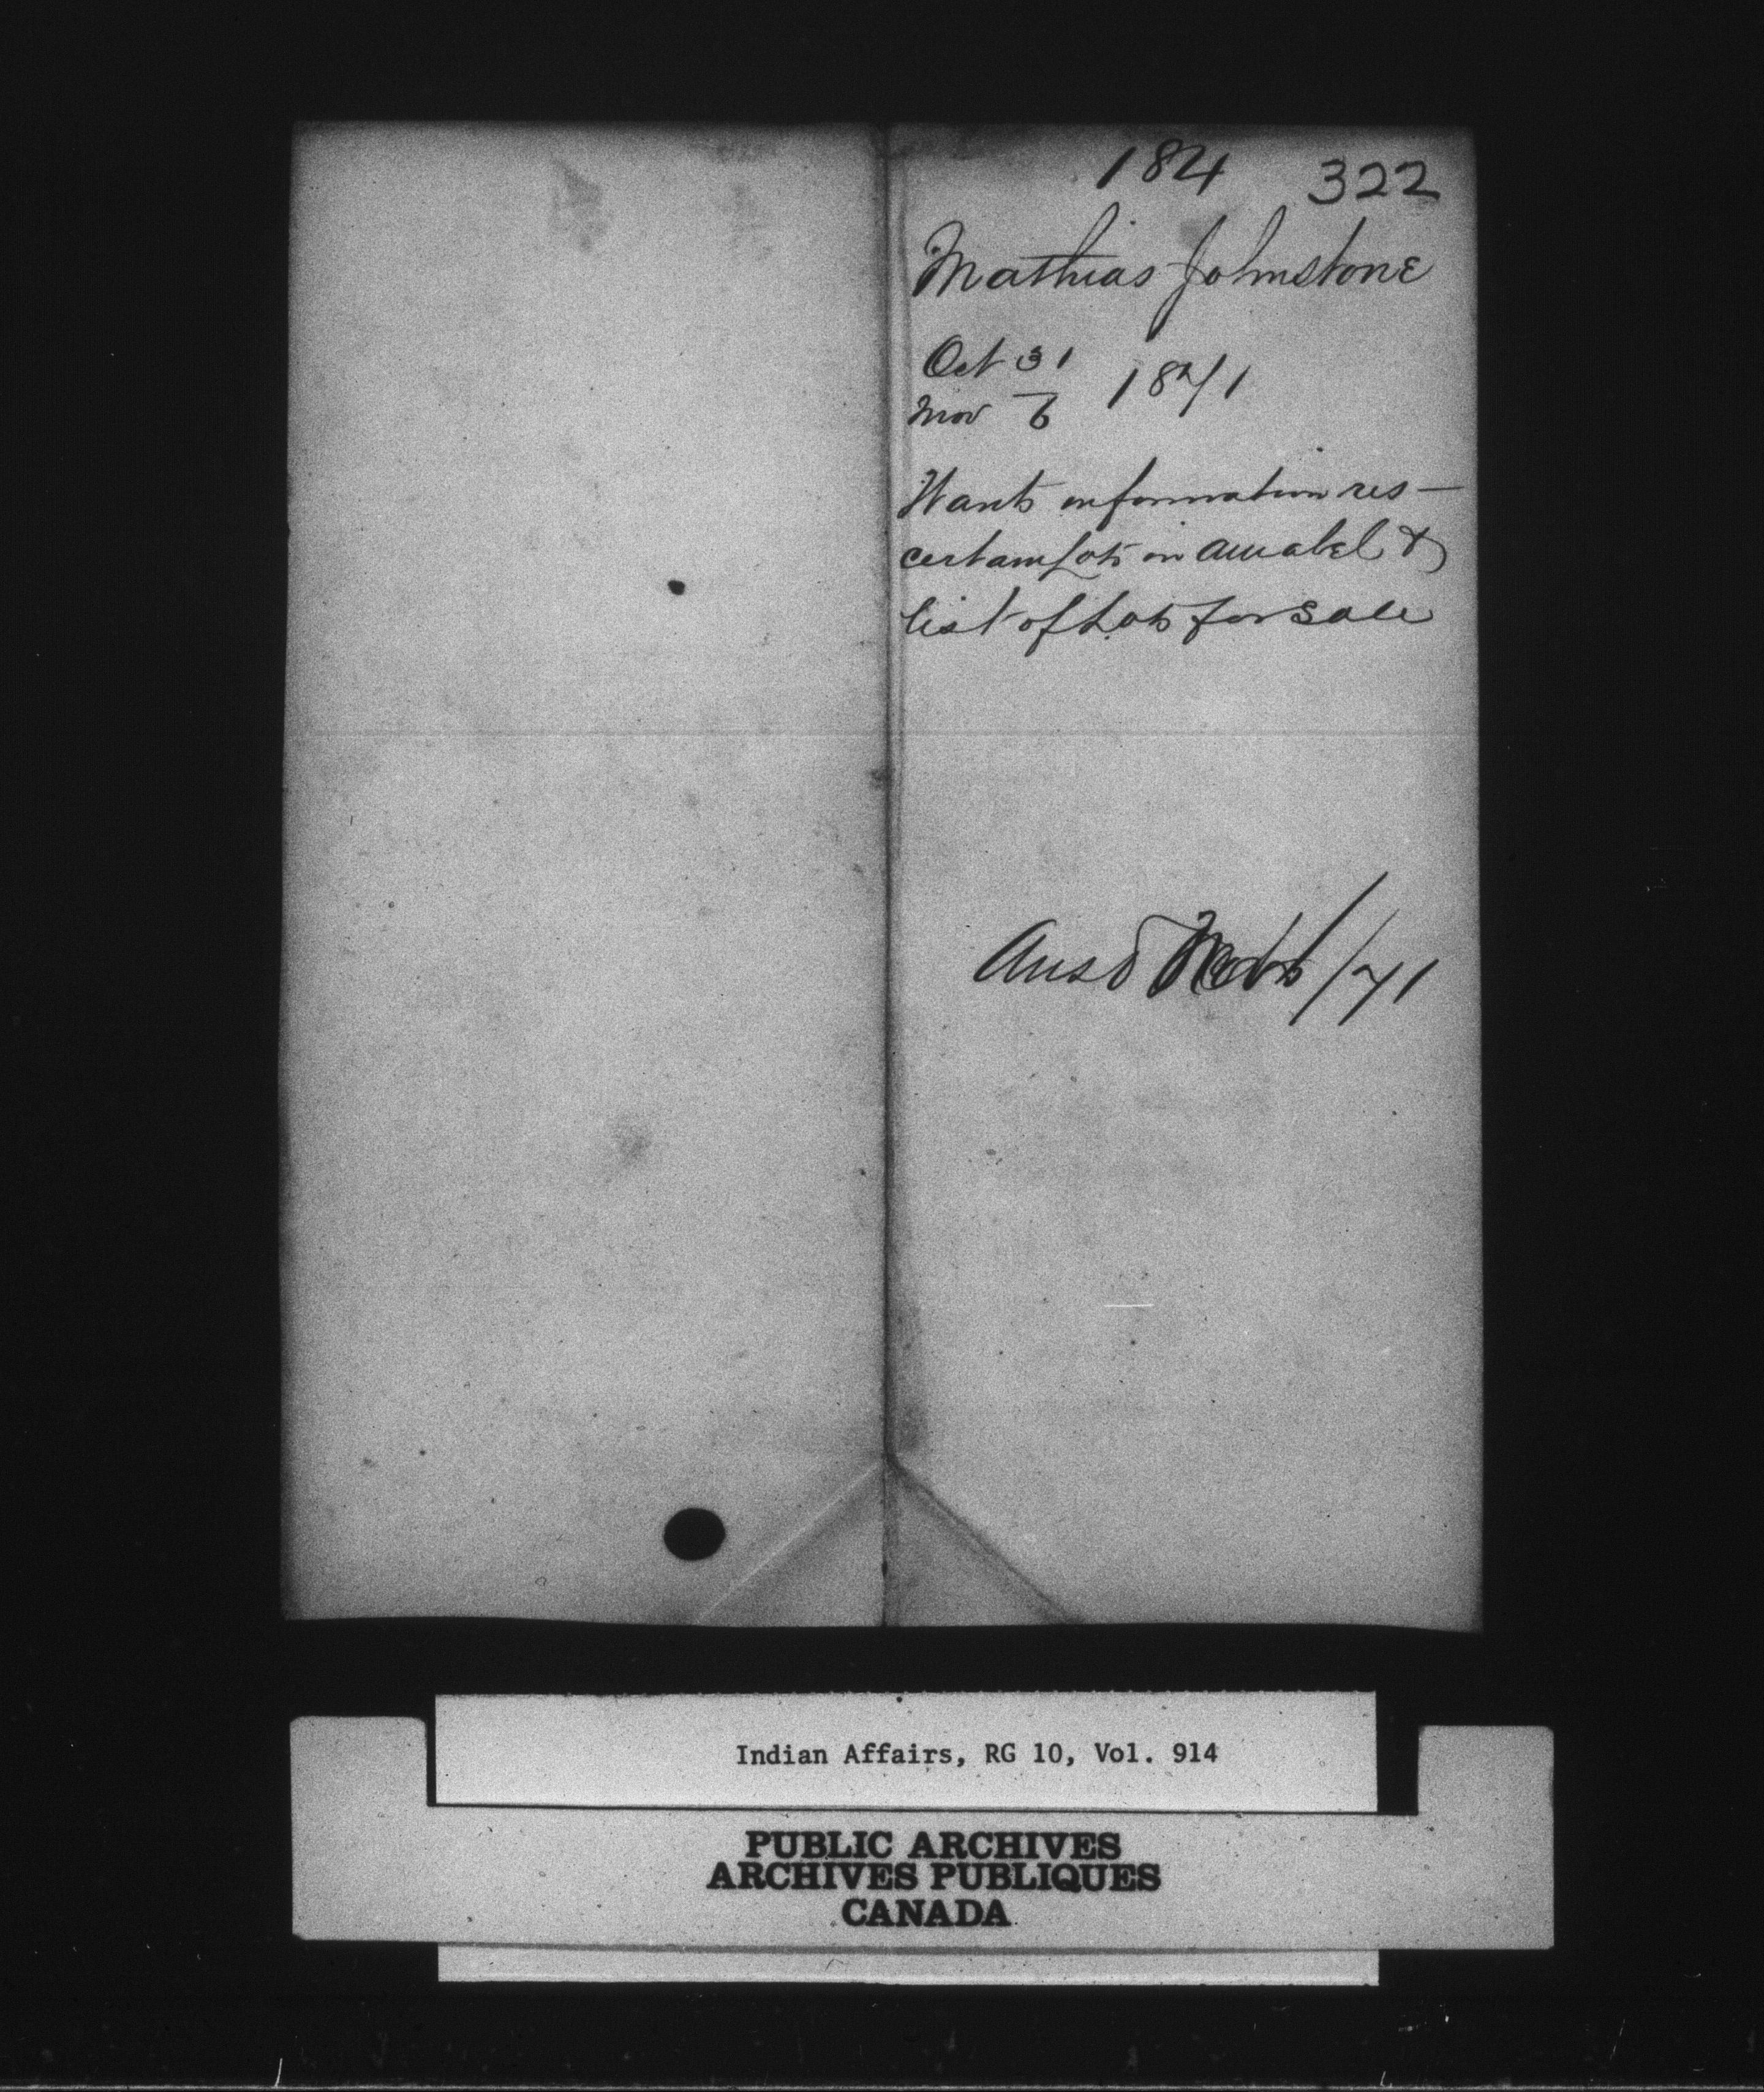 184 322
Mathias Johnstone
Oct 31
Nov 6 1871
Wants information res—
certain Lots in Amabel &
list of Lots for sale
Ansd /71
Indian Affairs, RG 10, Vol. 914
PUBLIC ARCHIVES
ARCHIVES PUBLIQUES
CANADA